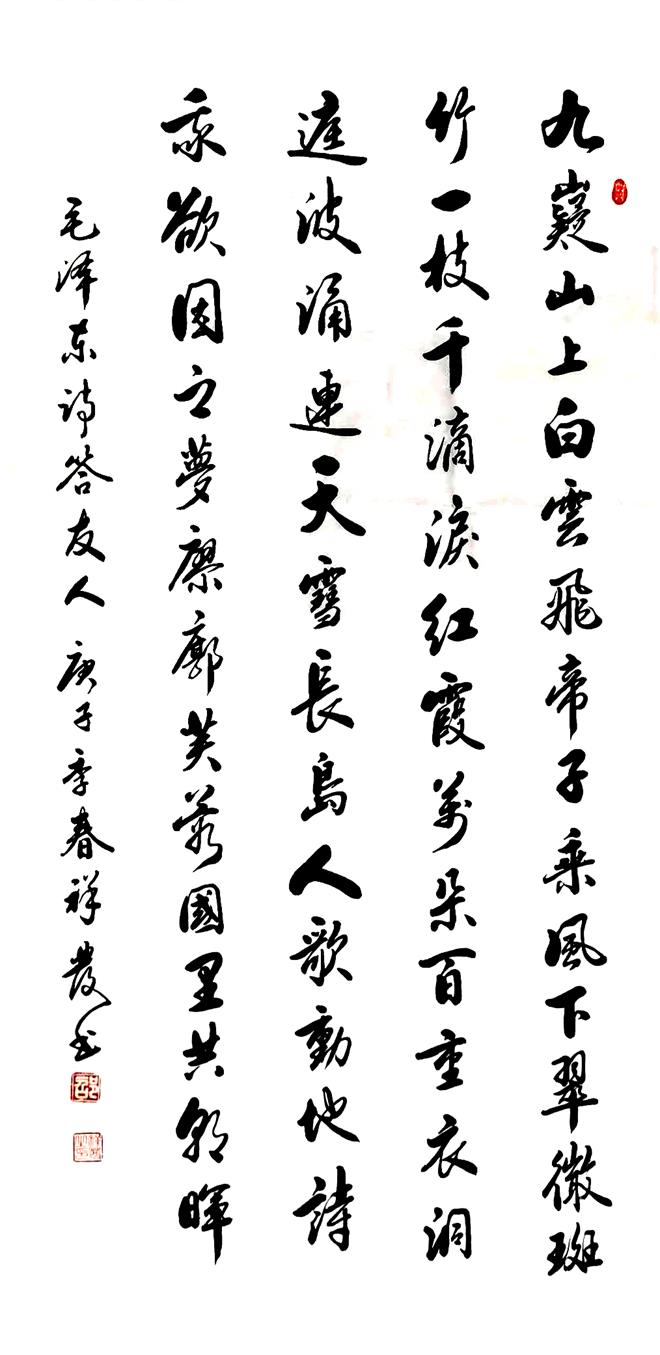 九嶷山上白雲飛帝子乘風下翠微斑
竹一枝千滴淚紅霞萬朵百重衣洞
庭波涌連天雪長島人歌動地詩
我欲因之夢廖廓芙蓉國里共朝暉
毛泽东诗答友人 庚子季春祥發书